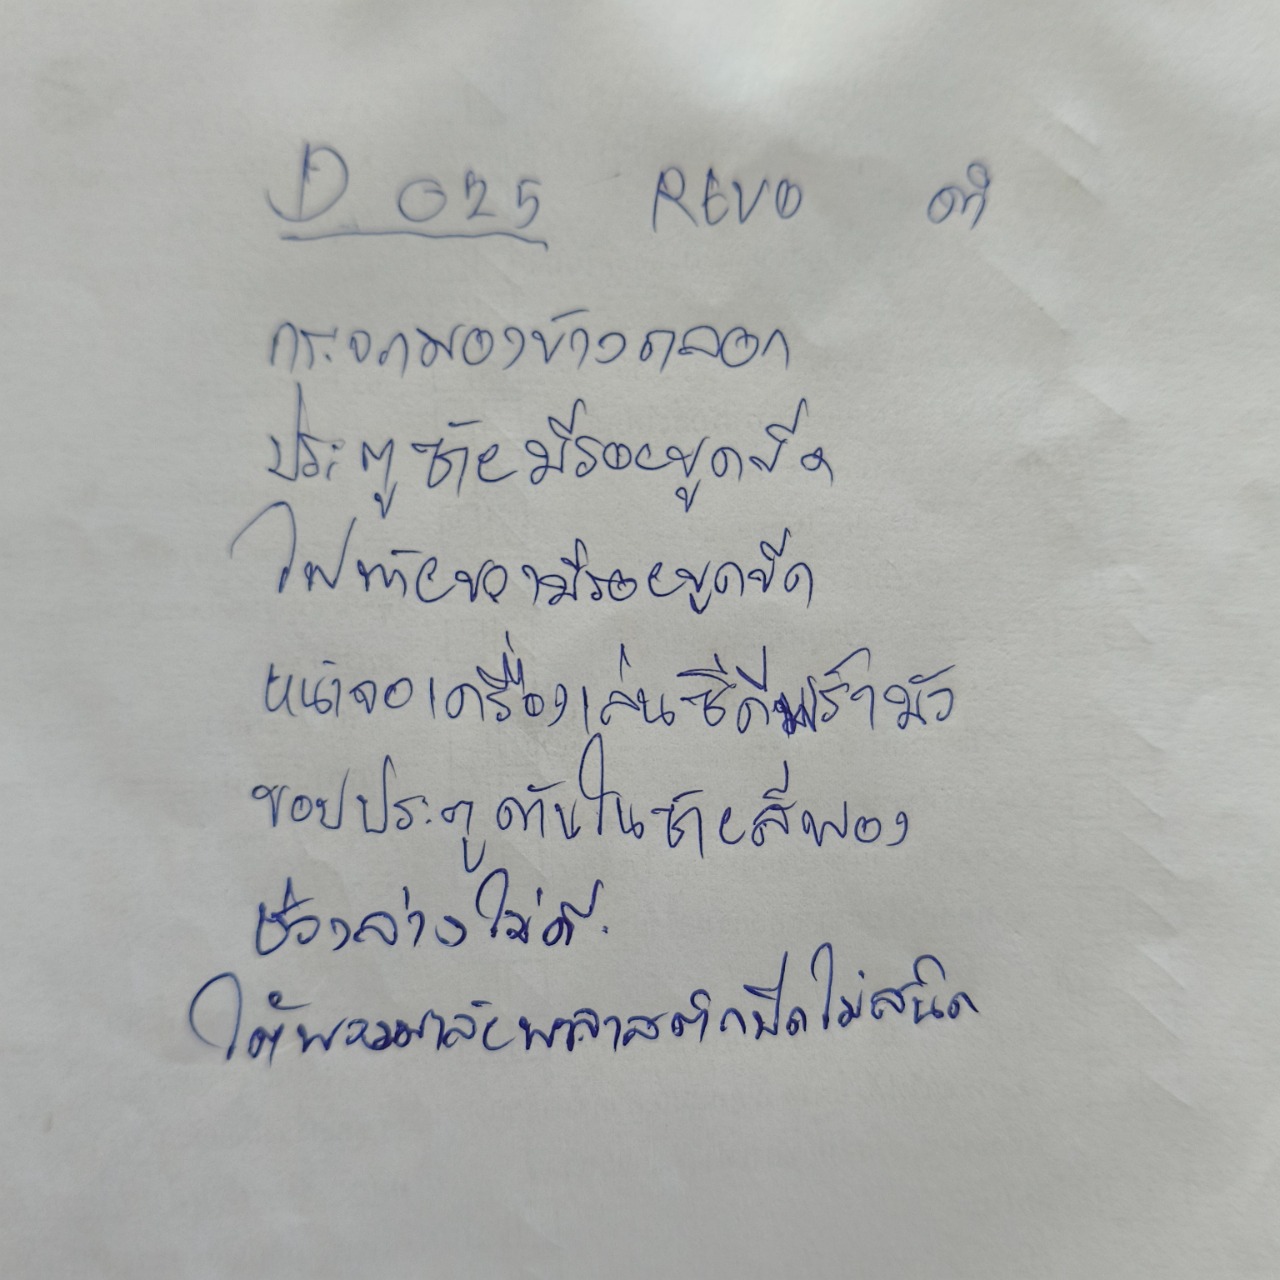 D 025 REVO ดำ
กระจกมองข้างถลอก
ประตูซ้ายมีรอยขูดขีด
ไฟท้ายขวามีรอยขูดขีด
หน้าจอเครื่องเล่นซีดีพร่ามัว
ขอบประตูด้านในซ้ายสีพอง
ช่วงล่างไม่ดี
ใต้พวงมาลัยพลาสติกปิดไม่สนิด